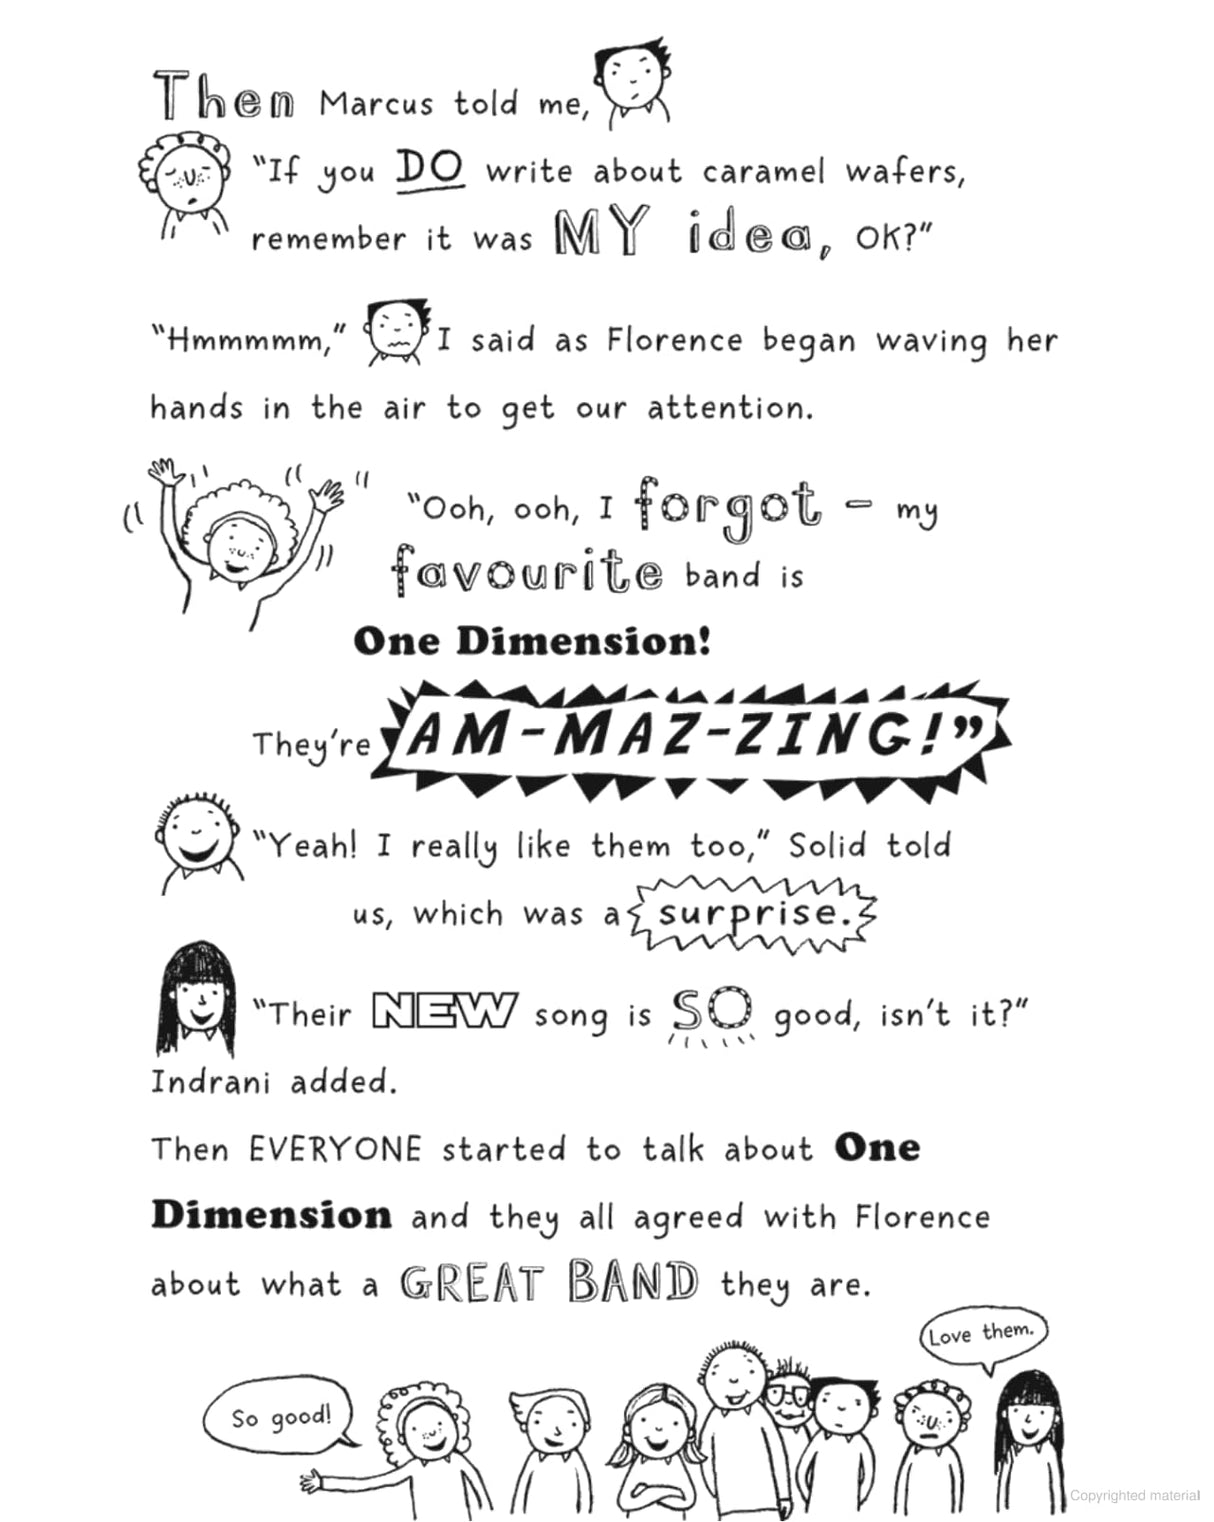 Then Marcus told me,
"If you DO write about caramel wafers,
remember it was MY idea, OK?"
"Hmmmmm," I said as Florence began waving her
hands in the air to get our attention.
"Ooh, ooh, I forgot - my
favourite band is
One Dimension!
They're AM-MAZ-ZING!"
"Yeah! I really like them too," Solid told
us, which was a surprise.
"Their NEW song is SO good, isn't it?"
Indrani added.
Then EVERYONE started to talk about One
Dimension and they all agreed with Florence
about what a GREAT BAND they are.
Love them.
So good!
Copyrighted material